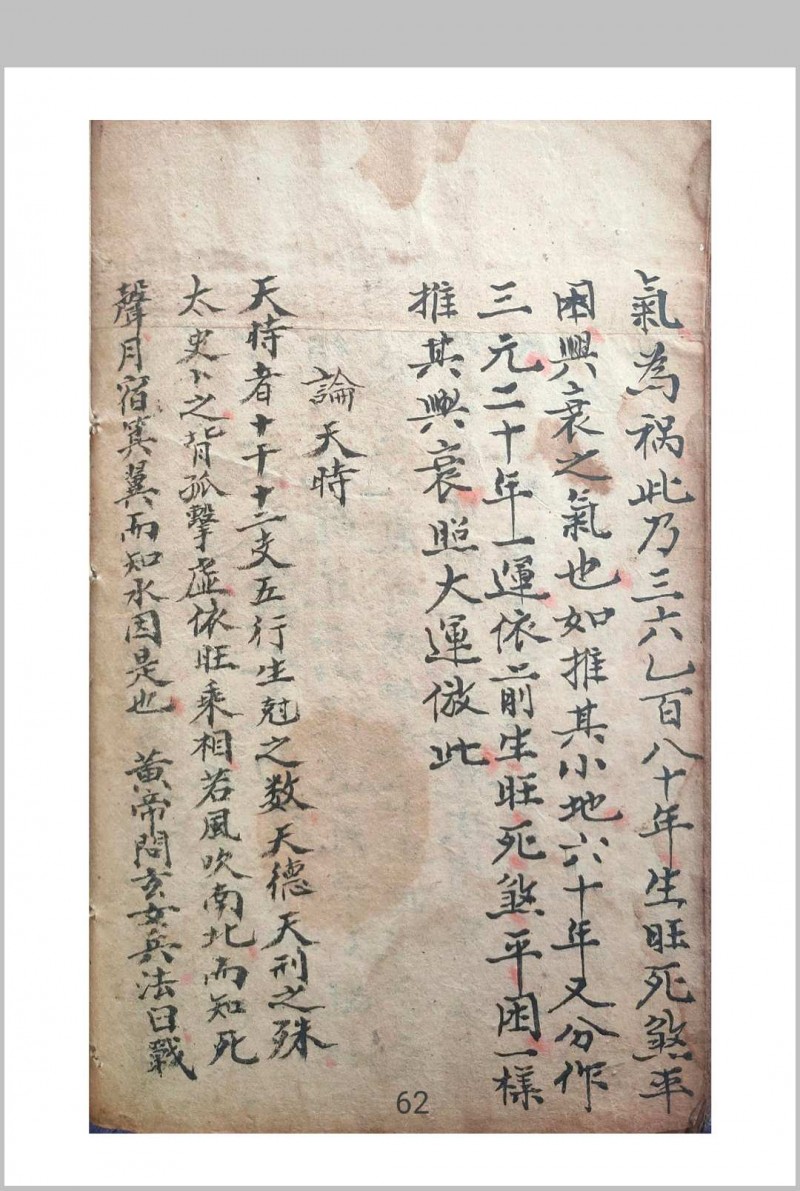 氣為祸此乃三六乙百八十年生旺死煞平
困興衰之氣也如推其小地六十年又分作
三元二十年一運依前生旺死煞平困一様
推其興衰照大運倣此
論天時
天時者十干十二支五行生尅之数天德天刑之殊
太史卜之背孤擊虛依旺乘相若風吹南北而知死
聲月宿箕翼而知水因是也 黄帝問玄女兵法曰戰
62